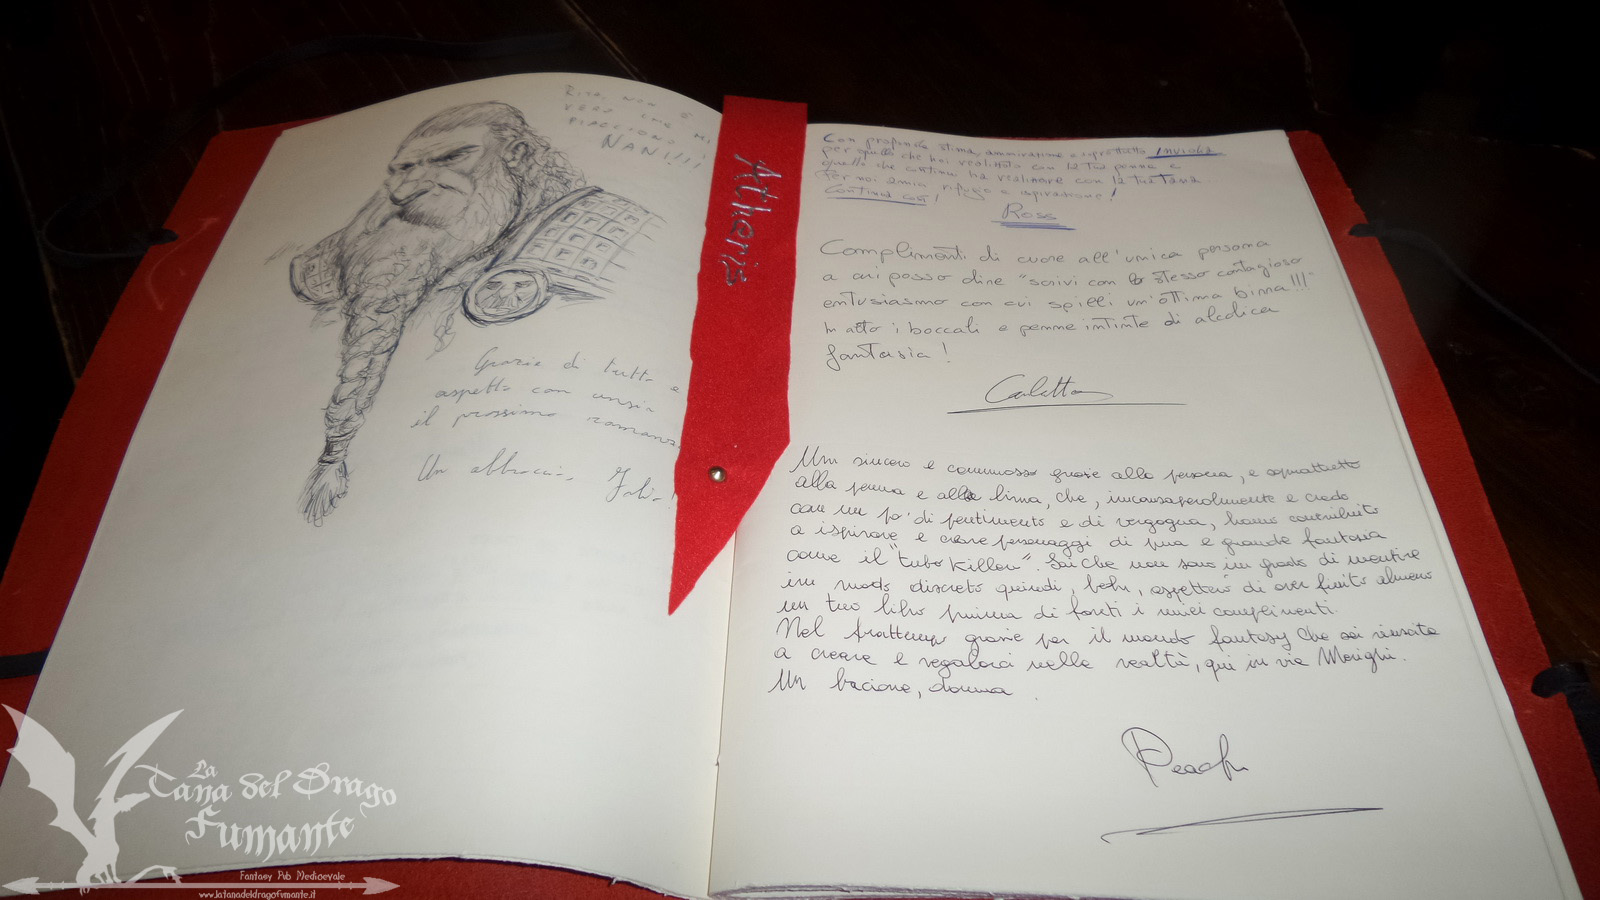 NON È
VERO CHE MI
PIACCIONO I
NANI!!!!
Grazie di tutto e
aspetto con ansia
il prossimo romanzo.
Un abbraccio,
Atheris
Con profonda stima, ammirazione e soprattutto INVIDIA
per quello che hai realizzato con la tua penna e
quello che continui a realizzare con la tua Tana.
Per noi amici, rifugio e ispirazione!
Continua così!
Ross
Complimenti di cuore all'unica persona
a cui posso dire "scrivi con lo stesso contagioso
entusiasmo con cui spilli un'ottima birra!!!"
In alto i boccali e penne intinte di alcolica
fantasia!
Un sincero e commosso grazie alla persona, e soprattutto
alla penna e alla birra, che, inconsapevolmente e credo
con un po' di pentimento e di vergogna, hanno contribuito
a ispirare e creare personaggi di pura e grande fantasia
come il "tubo Killer". Sai che non sono in grado di mentire
in modo discreto quindi, beh, aspetterò di aver finito almeno
un tuo libro prima di farti i miei complimenti.
Nel frattempo grazie per il mondo fantasy che sei riuscita
a creare e regalarci nella realtà, qui in via Morighi.
Un bacione, donna
La
Tana del Drago
Fumante
Fantasy Pub Medioevale
www.latanadeldragofumante.it